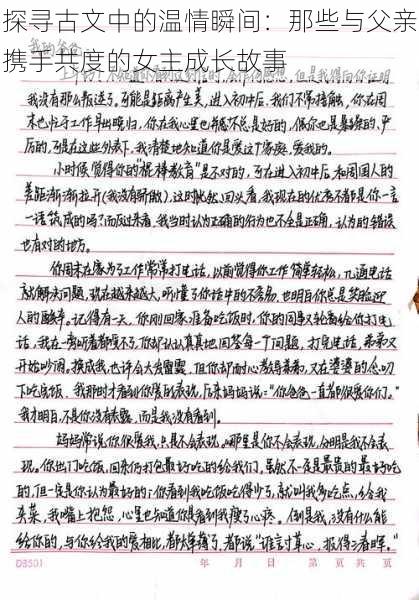 探寻古文中的温情瞬间：那些与父亲
携手共度的女主成长故事
我的爸爸
我没有那么叛逆了。可能是距离产生美，进入初中后，我们不常接触，你在周
末也忙于工作早出晚归，你在我心里也
厉的，可是在这些外表下，我清楚地知道你是爱这个家庭，爱我的。
小时候觉得你的"棍棒教育"是不对的，可在进入初中后，和周围人的
差距渐渐拉开(我没有骄傲)，这时默然回头看，我现在的优秀不都是你一言
一语筑成的吗？而反过来看，我当时认为正确的行为也不全是正确，认为的错误
也有对的地方。
你周末在家为了工作常常打电话，以前觉得你工作简单轻松，几通电话
就解决问题，现在越来越大，听懂了你话中的不容易，也明白你总是笑脸迎
人的 。记得有一天，你刚回家准备吃饭时，你的同事又轮番给你打电
话，我在一旁听着都受不了，你却认认真真地回答每一个问题，打完电话，弟弟又
开始吵闹。换成我，也许会大发雷霆，但你却耐心教导弟弟，又在婆婆的念叨
下吃完饭，我那时才看到你爱的表现，后来妈妈说："你爸爸一直都很爱你们。"
我才明白，不是你没有表露，而是我没有看到。
妈妈常说你很爱我，只是不会表现。哪里是你不会表现，分明是我不会表
现。你出门吃饭，回来仍打包最好吃的给我们，虽然不一定是最贵的最好吃
的，但一定是你认为最好的；你看到我吃饭吃得少了，就叫我多吃点，给我
夹菜，我嘴上抱怨，心里也知道你是看到我瘦了心疼。倒是我，没有什么能
给你的，与你给我的爱相比，都太单薄了，都说"谁言寸草心，报得三春晖。"
D8501 年 月 日 第 页 共 页